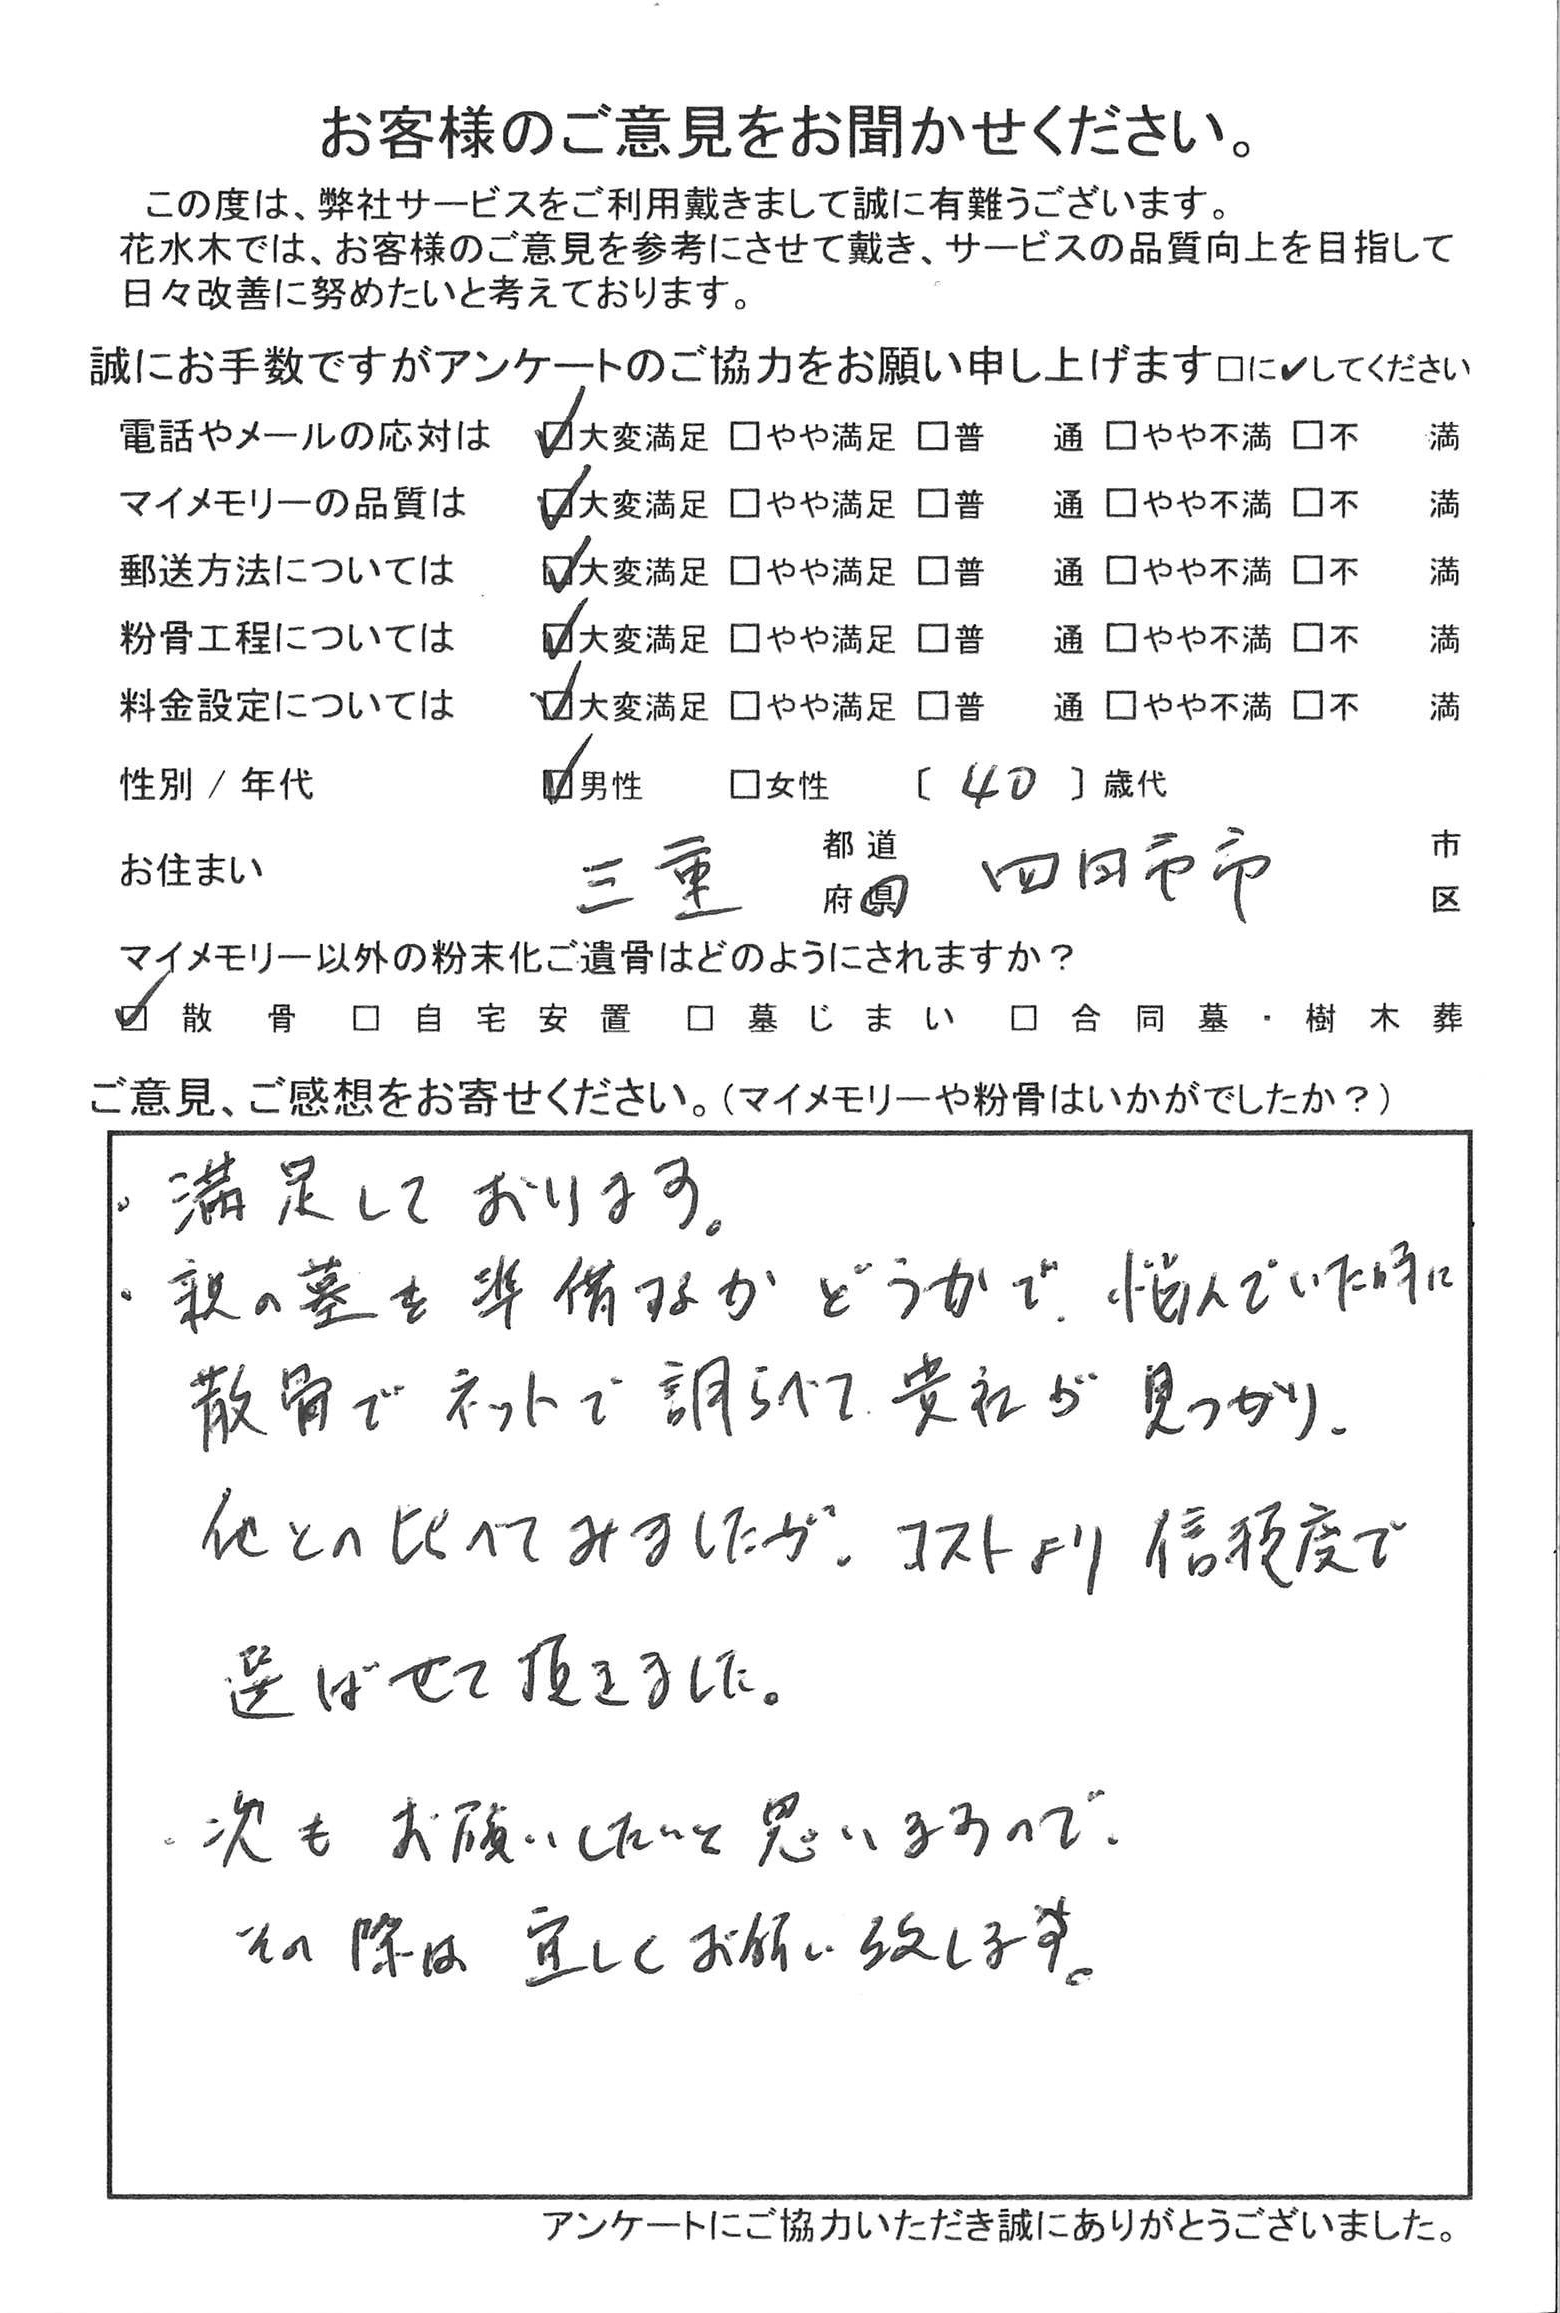 お客様のご意見をお聞かせください。
この度は、弊社サービスをご利用戴きまして誠に有難うございます。
花水木では、お客様のご意見を参考にさせて戴き、サービスの品質向上を目指して
日々改善に努めたいと考えております。
誠にお手数ですがアンケートのご協力をお願い申し上げます□に✔してください
電話やメールの応対は ☑大変満足 □やや満足 □普 通 □やや不満 □不 満
マイメモリーの品質は ☑大変満足 □やや満足 □普 通 □やや不満 □不 満
郵送方法については ☑大変満足 □やや満足 □普 通 □やや不満 □不 満
粉骨工程については ☑大変満足 □やや満足 □普 通 □やや不満 □不 満
料金設定については ☑大変満足 □やや満足 □普 通 □やや不満 □不 満
性別 / 年代 ☑男性 □女性 〔 40 〕歳代
お住まい 三重 都道府県 四日市市 市区
マイメモリー以外の粉末化ご遺骨はどのようにされますか？
☑ 散骨 □ 自宅安置 □ 墓じまい □ 合同墓・樹木葬
ご意見、ご感想をお寄せください。（マイメモリーや粉骨はいかがでしたか？）
・満足しております。
・親の墓を準備するかどうかで、悩んでいた時に
散骨でネットで調らべて、貴社が見つかり、
他との比べてみましたが、コストより信頼度で
選ばせて頂きました。
・次もお願いしたいと思いますので、
その際は宜しくお願い致します。
アンケートにご協力いただき誠にありがとうございました。